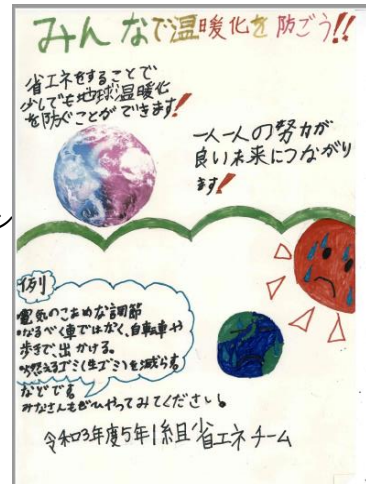 みんなで温暖化を防ごう!!
省エネをすることで
少しでも地球温暖化
を防ぐことができます!
一人一人の努力が
良い未来につながり
ます!
例
電気のこまめな調節
・なるべく車ではなく、自転車や
歩きで、出かける。
・燃えるゴミ(生ゴミ)を減らす
などです
みなさんもぜひやってみてください。
令和3年度5年1組省エネチーム